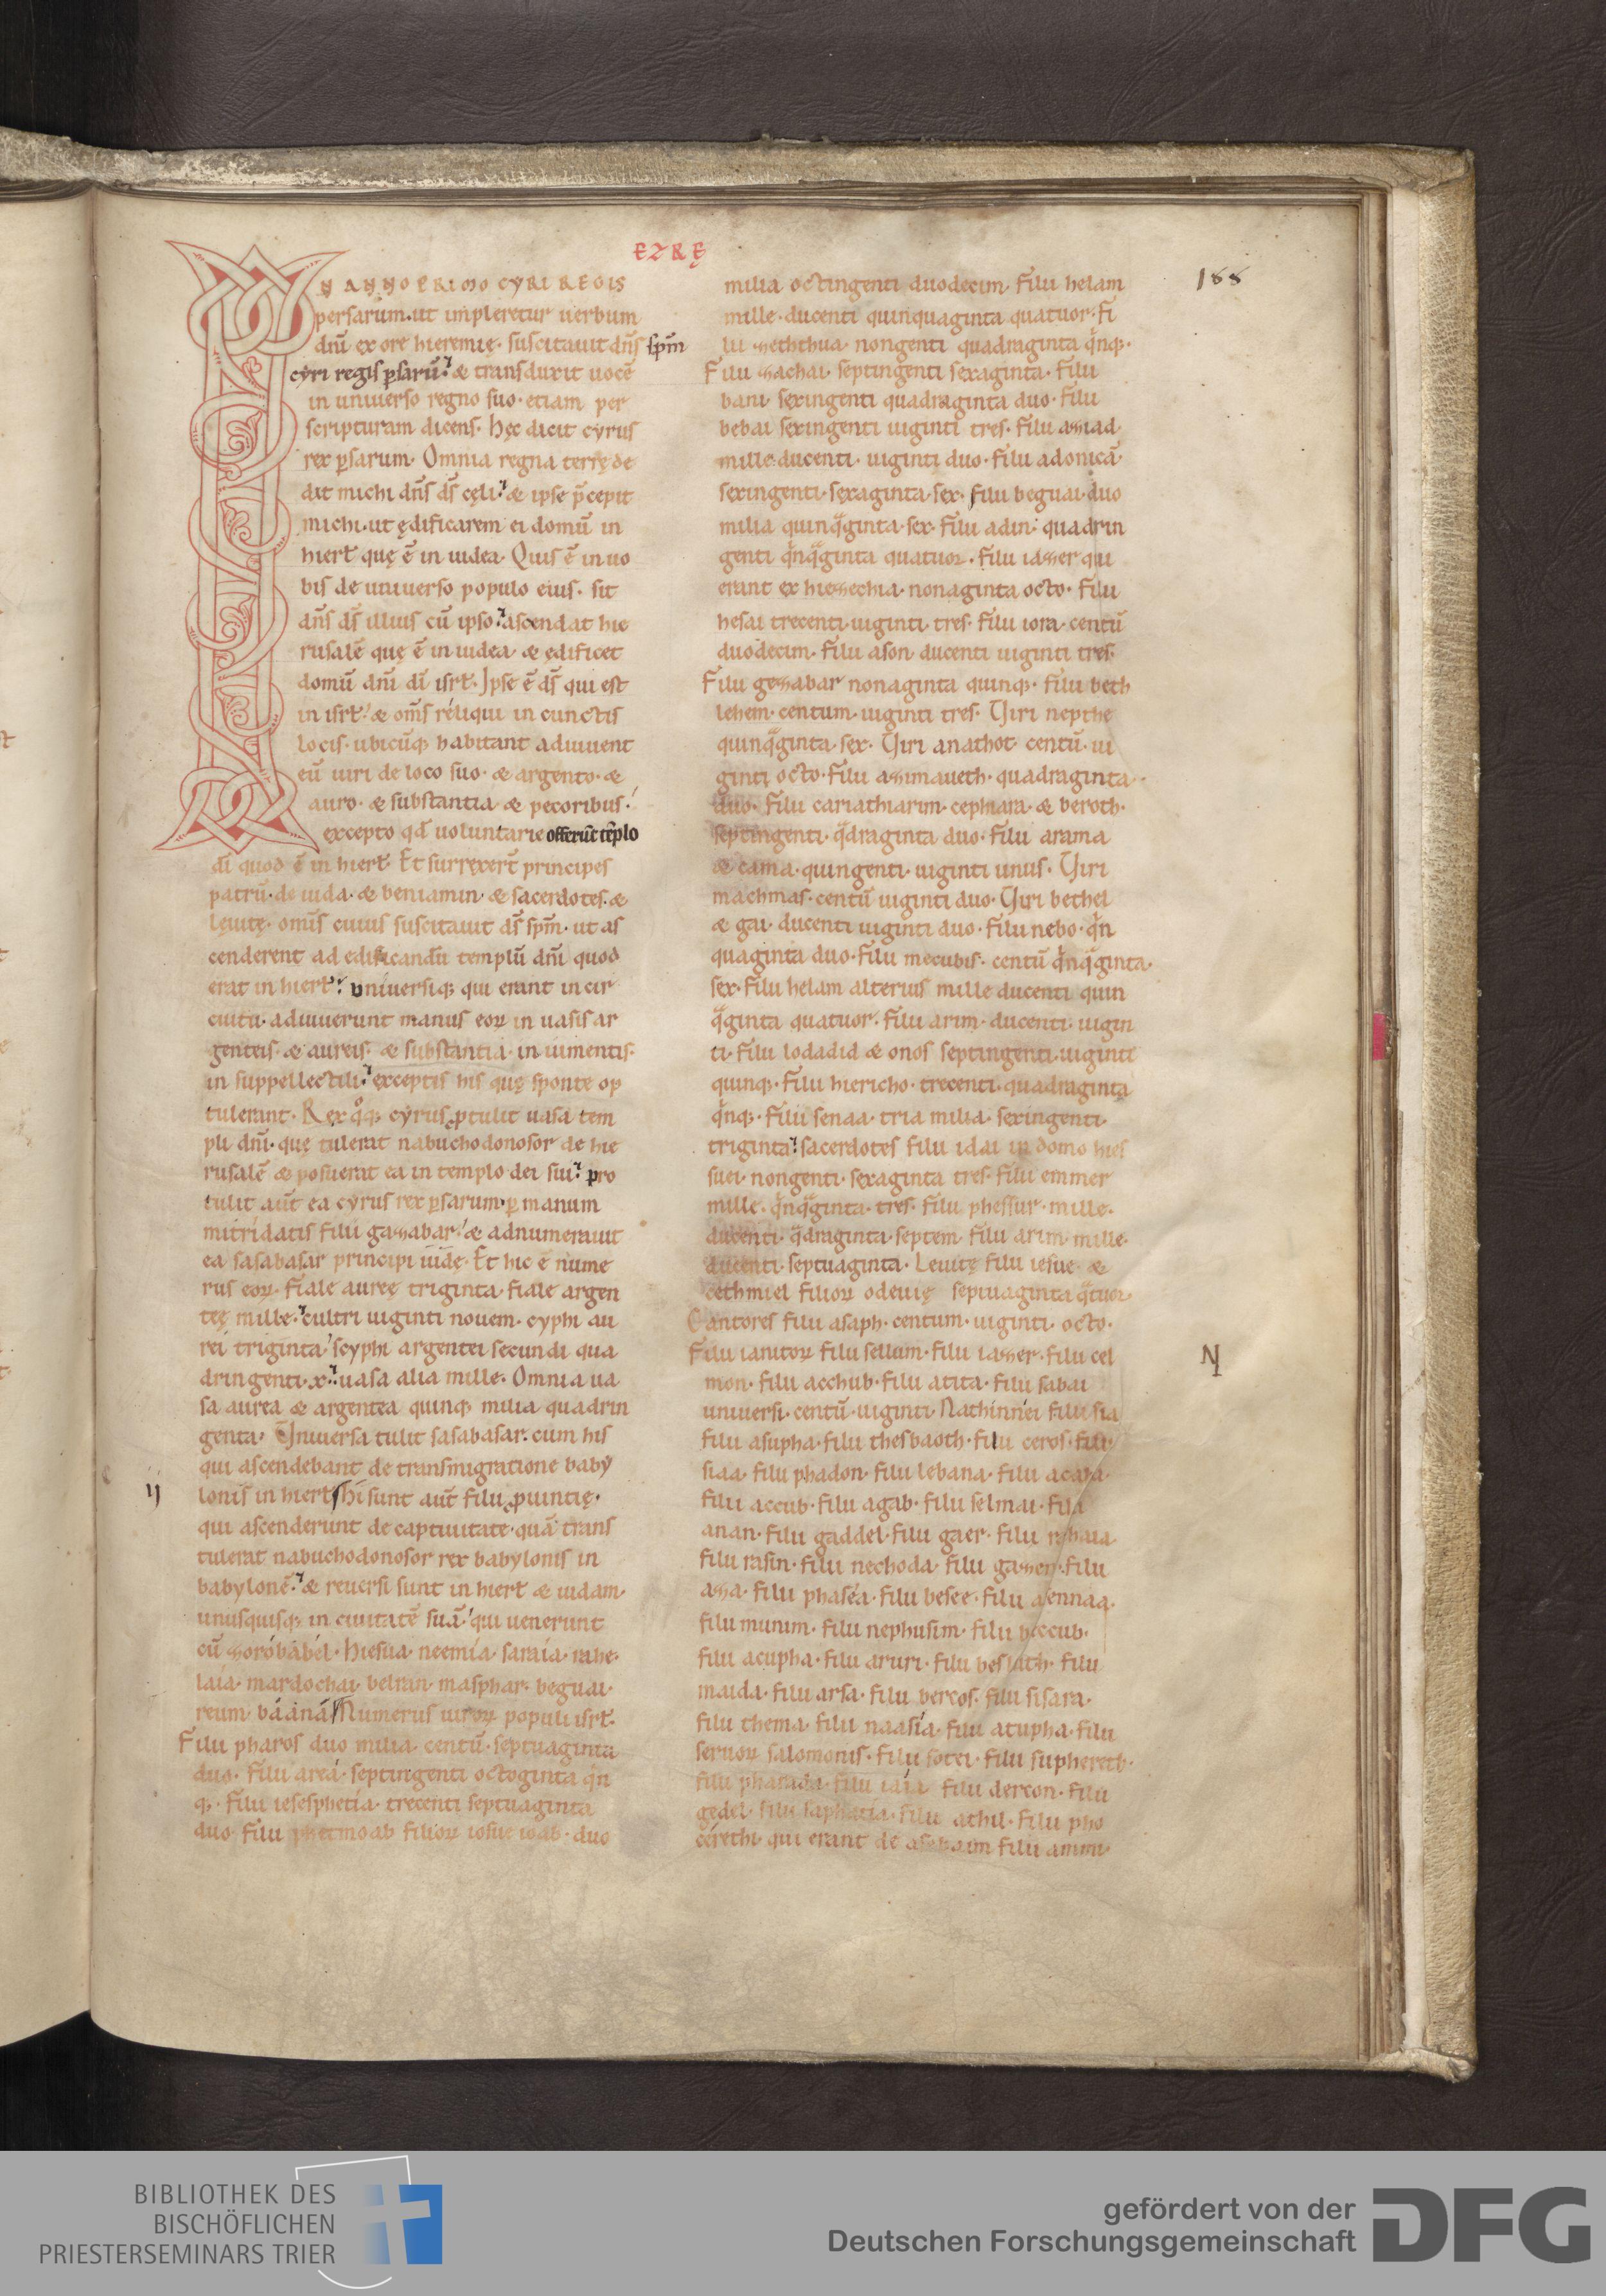 EZRĘ
188
IN ANNO PRIMO CYRI REGIS
persarum· ut impleretur uerbum
dnī ex ore hieremię· suscitauit dn̄s sp̄m
cyri regis ꝑsarū· & transduxit uocē
in uniuerso regno suo· etiam per
scripturam dicens· Hęc dicit cyrus
rex ꝑsarum· Omnia regna terrę de
dit michi dn̄s ds̄ cęli· & ipse p̄cepit
michi· ut ędificarem ei domū in
hierł quę ē in iudea· Quis ē in uo
bis de uniuerso populo eius· sit
dn̄s ds̄ illius cū ipso· ascendat hie
rusalē quę ē in iudea· & ędificet
domū dn̄i dī isrł· Ipse ē ds̄ qui est
in isrł· & om̄s reliqui in cunctis
locis· ubicūq; habitant adiuuent
eū uiri de loco suo· & argento· &
auro· & substantia & pecoribus·
excepto qd̄ uoluntarie offerūt tēplo
dī quod ē in hierł· Et surrexert̄ principes
patrū· de iuda· & beniamin· & sacerdotes· &
leuitę· omīs cuius suscitauit ds̄ sp̄m· ut as
cenderent ad edificandū templū dn̄i quod
erat in hierł· uniuersiq; qui erant in cir
cuitu· adiuuerunt manus eoꝝ in uasis ar
genteis· & aureis· & substantia· in iumentis·
in suppellectili· exceptis his quę sponte op
tulerant· Rex qͦq; cyrus ꝓtulit uasa tem
pli dn̄i· quę tulerat nabuchodonosor de hie
rusalē & posuerat ea in templo dei sui· pro
tulit aūt ea cyrus rex ꝑsarum· ꝑ manum
mitridatis filii gazabar· & adnumerauit
ea sasabasar principi iudę· Et hic ē nume
rus eoꝝ· fiale aureę triginta· fiale argen
teę mille· cultri uiginti nouem· cyphi au
rei triginta· scyphi argentei secundi qua
dringenti·x· uasa alia mille· Omnia ua
sa aurea & argentea quinq; milia quadrin
genta· Uniuersa tulit sasabasar· cum his
qui ascendebant de transmigratione baby
ij lonis in hierł Hi sunt aūt filii ꝓuintię·
qui ascenderunt de captiuitate· quā trans
tulerat nabuchodonosor rex babylonis in
babylonē· & reuersi sunt in hierł & iudam·
unusquisq; in ciuitatē suā· qui uenerunt
cū zorobabel· Hiesua· neemia· saraia· rahe
laia· mardochai· belran· masphar· beguai·
reum· baana Numerus uiroꝝ populi isrł·
Filii pharos duo milia· centū· septuaginta
duo· Filii area· septingenti octoginta q̇n
q;· Filii iesesphetia· trecenti septuaginta
duo· Filii phetmoab filioꝝ iosue ioab· duo
milia octingenti duodecim· Filii helam
mille· ducenti quinquaginta quatuor· fi
lii zeththua· nongenti quadraginta q̇nq;·
Filii zachai· septingenti sexaginta· Filii
bani· sexingenti quadraginta duo· Filii
bebai sexingenti uiginti tres· Filii azgad
mille· ducenti· uiginti duo· Filii adonicā·
sexingenti· sexaginta· sex· filii beguai· duo
milia quinqͣginta· sex· Filii adin· quadrin
genti q̇nqͣginta quatuor· Filii iazer qui
erant ex hiezechia· nonaginta octo· Filii
hesai trecenti· uiginti· tres· Filii iora· centū
duodecim· Filii ason ducenti uiginti tres·
Filii gezabar nonaginta quinq;· Filii beth
lehem· centum· uiginti tres· Uiri nepthe
quinqͣginta· sex· Uiri anathot· centū· ui
ginti octo· Filii azimaueth· quadraginta·
duo· Filii cariathiarim· cephiara· & beroth·
septingenti· qͣdraginta duo· Filii arama
& cama· quingenti· uiginti unus· Uiri
machmas· centū uiginti duo· Uiri bethel
& gai· ducenti uiginti duo· Filii nebo· q̇n
quaginta duo· Filii mecubis· centū q̇nqͣginta·
sex· Filii helam alterius mille ducenti quin
qͣginta quatuor· Filii arim· ducenti· uigin
ti· Filii lodadid & onos septingenti· uiginti
quinq;· Filii hiericho· trecenti· quadraginta
q̇nq;· Filii senaa· tria milia· sexingenti·
triginta· Sacerdotes filii idai in domo hies
suei· nongenti· sexaginta tres· Filii emmer
mille· q̇nqͣginta· tres· Filii phessur· mille·
ducenti· qͣdraginta· septem· Filii arim· mille·
ducenti· septuaginta· Leuitę filii iesue· &
cethmiel filioꝝ odeuię septuaginta qͣtuor·
Cantores filii asaph· centum· uiginti· octo·
Filii ianitoꝝ filii sellum· Filii iazer· filii cel
mon· filii acchub· Filii atita· filii sabai
uniuersi· centū· uiginti· Nathinnei filii sia
filii asupha· filii thesbaoth· filii ceros· filii
siaa· filii phadon· filii lebana· filii acaba·
filii accub· filii agab· filii selmai· filii
anan· filii gaddel· filii gaer· filii rahaia
filii rasin· filii nechoda· filii gazem· filii
aza· filii phasea· filii besee· filii asennaa·
filii munim· filii nephusim· filii beccub·
filii acupha· filii aruri· filii besluth· filii
maida· filii arsa· filii bercos· filii sisara·
filii thema· filii naasia· filii atupha· filii
seruoꝝ salomonis· filii sotei· filii suphereth·
filii pharuda· filii iaia filii dercon· filii
gedel· filii saphatia· filii athil· filii pho
cerethi· qui erant de asebaim filii ammi·
BIBLIOTHEK DES
BISCHÖFLICHEN
PRIESTERSEMINARS TRIER
gefördert von der
Deutschen Forschungsgemeinschaft
DFG